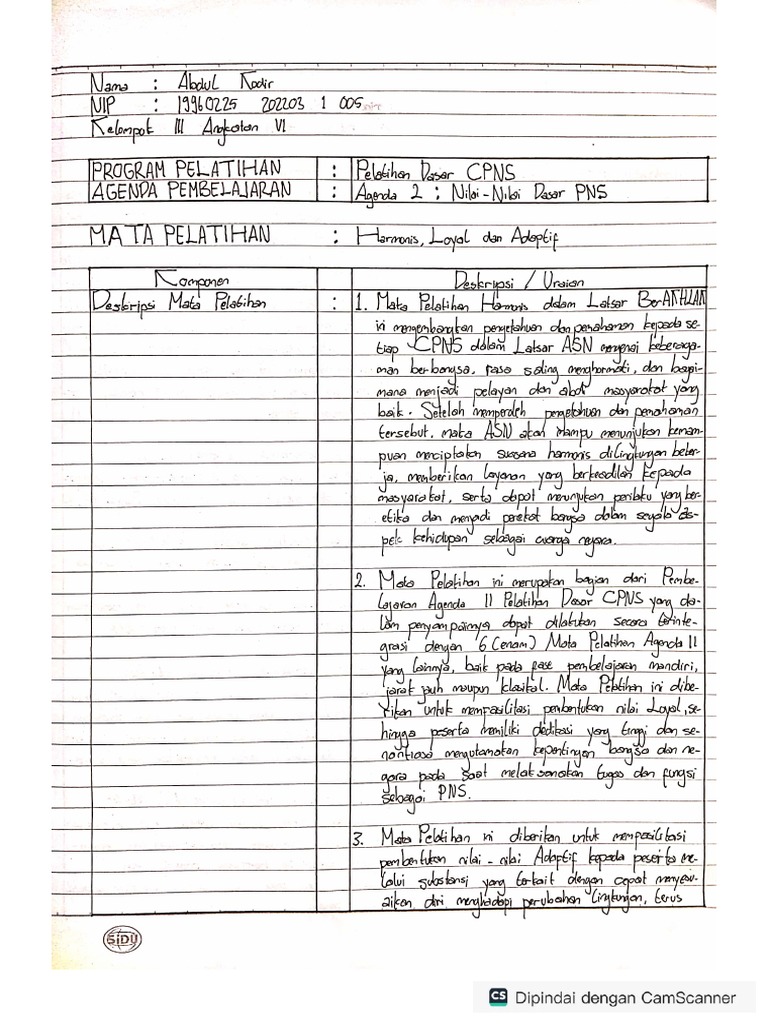 Nama : Abdul Kodir
NIP : 19960225 202203 1 005
Kelompok III Angkatan VI
PROGRAM PELATIHAN : Pelatihan Dasar CPNS
AGENDA PEMBELAJARAN : Agenda 2 : Nilai-Nilai Dasar PNS
MATA PELATIHAN : Harmonis, Loyal dan Adaptif
Komponen Deskripsi / Uraian
Deskripsi Mata Pelatihan : 1. Mata Pelatihan Harmonis dalam Latsar BerAKHLAK
ini mengembangkan pengetahuan dan pemahaman kepada se-
tiap CPNS dalam Latsar ASN mengenai keberaga-
man berbangsa, rasa saling menghormati, dan bagai-
mana menjadi pelayan dan abdi masyarakat yang
baik. Setelah memperoleh pengetahuan dan pemahaman
tersebut, maka ASN akan mampu menunjukan kemam-
puan menciptakan suasana harmonis dilingkungan beker-
ja, memberikan layanan yang berkeadilan kepada
masyarakat, serta dapat menunjukan perilaku yang ber-
etika dan menjadi perekat bangsa dalam segala as-
pek kehidupan sebagai warga negara.
2. Mata Pelatihan ini merupakan bagian dari Pembe-
lajaran Agenda II Pelatihan Dasar CPNS yang da-
lam penyampaiannya dapat dilakukan secara terinte-
grasi dengan 6 (enam) Mata Pelatihan Agenda II
yang lainnya, baik pada fase pembelajaran mandiri,
jarak jauh maupun klasikal. Mata Pelatihan ini dibe-
rikan untuk mempasilitasi pembentukan nilai Loyal, se-
hingga peserta memiliki dedikasi yang tinggi dan se-
nantiasa mengutamakan kepentingan bangsa dan ne-
gara pada saat melaksanakan tugas dan fungsi
sebagai PNS.
3. Mata Pelatihan ini diberikan untuk mempasilitasi
pembentukan nilai-nilai Adaptif kepada peserta me-
lalui substansi yang terkait dengan cepat menyesu-
aikan diri menghadapi perubahan lingkungan, terus
SiDU
CS Dipindai dengan CamScanner